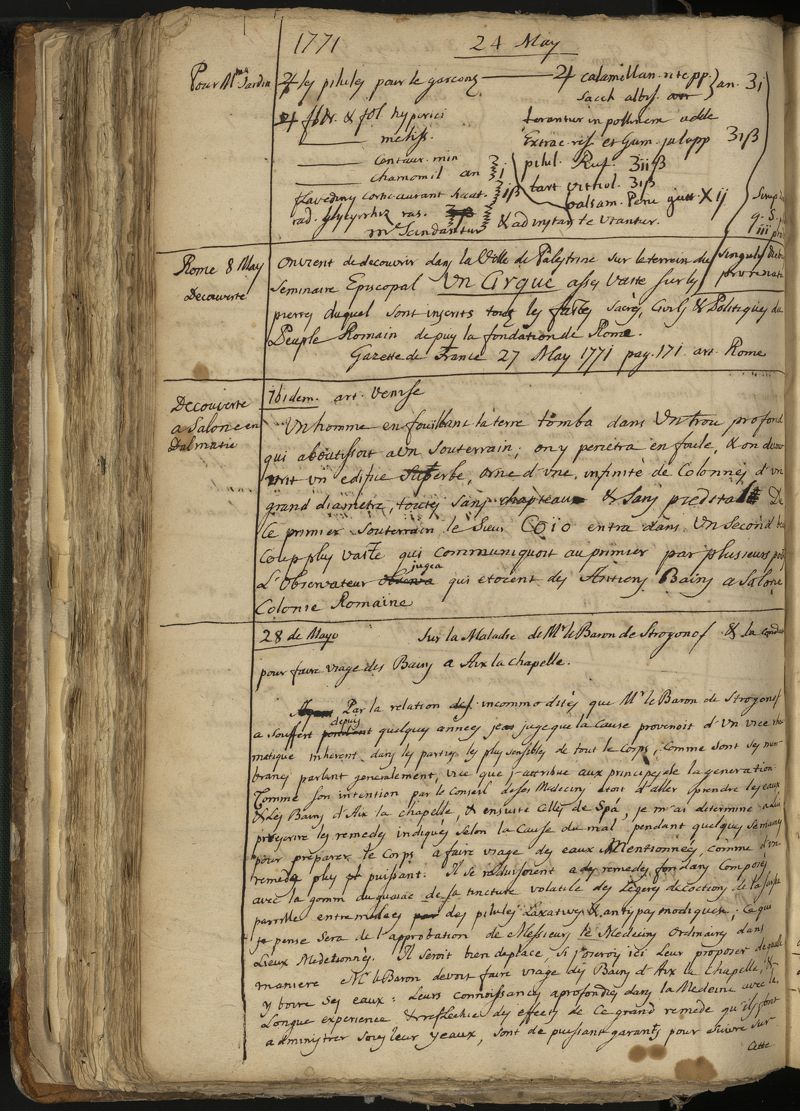 1771 24 May
Pour Mme Jardin
♃ les pilules pour le garconz — ♃ calamillan. rite pp. } an. ʒı
Sacch albis.
♃ fbdr. & fol hyperici terantur in pollinem adde
— meliss. Extrac. res. et Gum. jalapp ʒıß
— centaur. min pilul. Ruf. ʒiiß
— chamomil an ℥j tart vitriol. ʒıß
flavedin cortic. aurant siccat. ℥ıß balsam. Peru gutt X ij
rad. glycyrrhiz ras. & ad instante urantur.
m. Scindantur
Rome 8 May
Decouverte
on vient de decouvrir dans la Ville de Palestrine sur le terrain du
Seminaire Episcopal Un Cirque assés Vaste sur les
pierres duquel sont inscrits tous les fastes sacrés, Civils & Politiques du
Peuple Romain depuis la fondation de Rome.
Gazette de France 27 May 1771 pag. 171 art Rome
Decouverte
a Salone en
Dalmatie
Ibidem. art. Venise
Un homme en fouillant la terre tomba dans Un trou profond
qui aboutissoit a Un Souterrain; on y penetra en foule, & on decou
vrit Un edifice Superbe, orné d'une infinité de Colonnes d'un
grand diametre, toutes sans chapiteaux & sans piedstals De
ce premier Souterrain le Sieur Coio entra dans Un Second
coup plus vaste qui communiquoit au premier par plusieurs
L'Observateur jugea qui etoient des Antiens Bains a Salone
Colonie Romaine
28 de Mayo Sur la Maladie de Mr le Baron de Stroganof & la
pour faire usage des Bains a Aix la Chapelle.
Par la relation des incommodités que Mr le Baron de Stroganof
a souffert depuis quelques années je juge que la Cause provenoit d'Un vice
matique inherent dans les parties les plus sensibles de tout le Corps, comme sont les mem
branes parlant generalement, vice que j'attribue aux principes de la generation
Comme son intention par le Conseil de ses Medecins etoit d'aller prendre les eaux
& les Bains d'Aix la chapelle, & ensuite celles de Spa, je m'ai determiné a lui
prescrire les remedes indiqués selon la Cause du mal, pendant quelques Semaines
pour preparer le Corps a faire usage des eaux Mentionnées, comme d'un
remede plus puissant: Il se reduisoient a des remedes fondans Composés
avec la gomm du guaiac de sa tincture volatile des Legeres decoctions de la salse
parrille entremelées des pilules Laxatives & antyspasmodiques; Ce que
je pense sera de l'approbation de Messieurs le Medecins Ordinaires dans
Lieux Mentionnés. Il seroit bien deplacé si j'oserois ici leur proposer de quelle
maniere Mr le Baron devoit faire usage des Bains d'Aix la Chapelle, &
y boire ses eaux: Leurs connoissances aprofondies dans la Medecine avec la
Longue experience & reflechie des effects de Ce grand remede qu'ils font
administrer sous leur yeaux, sont de puissant garants pour suivre sur
Cette